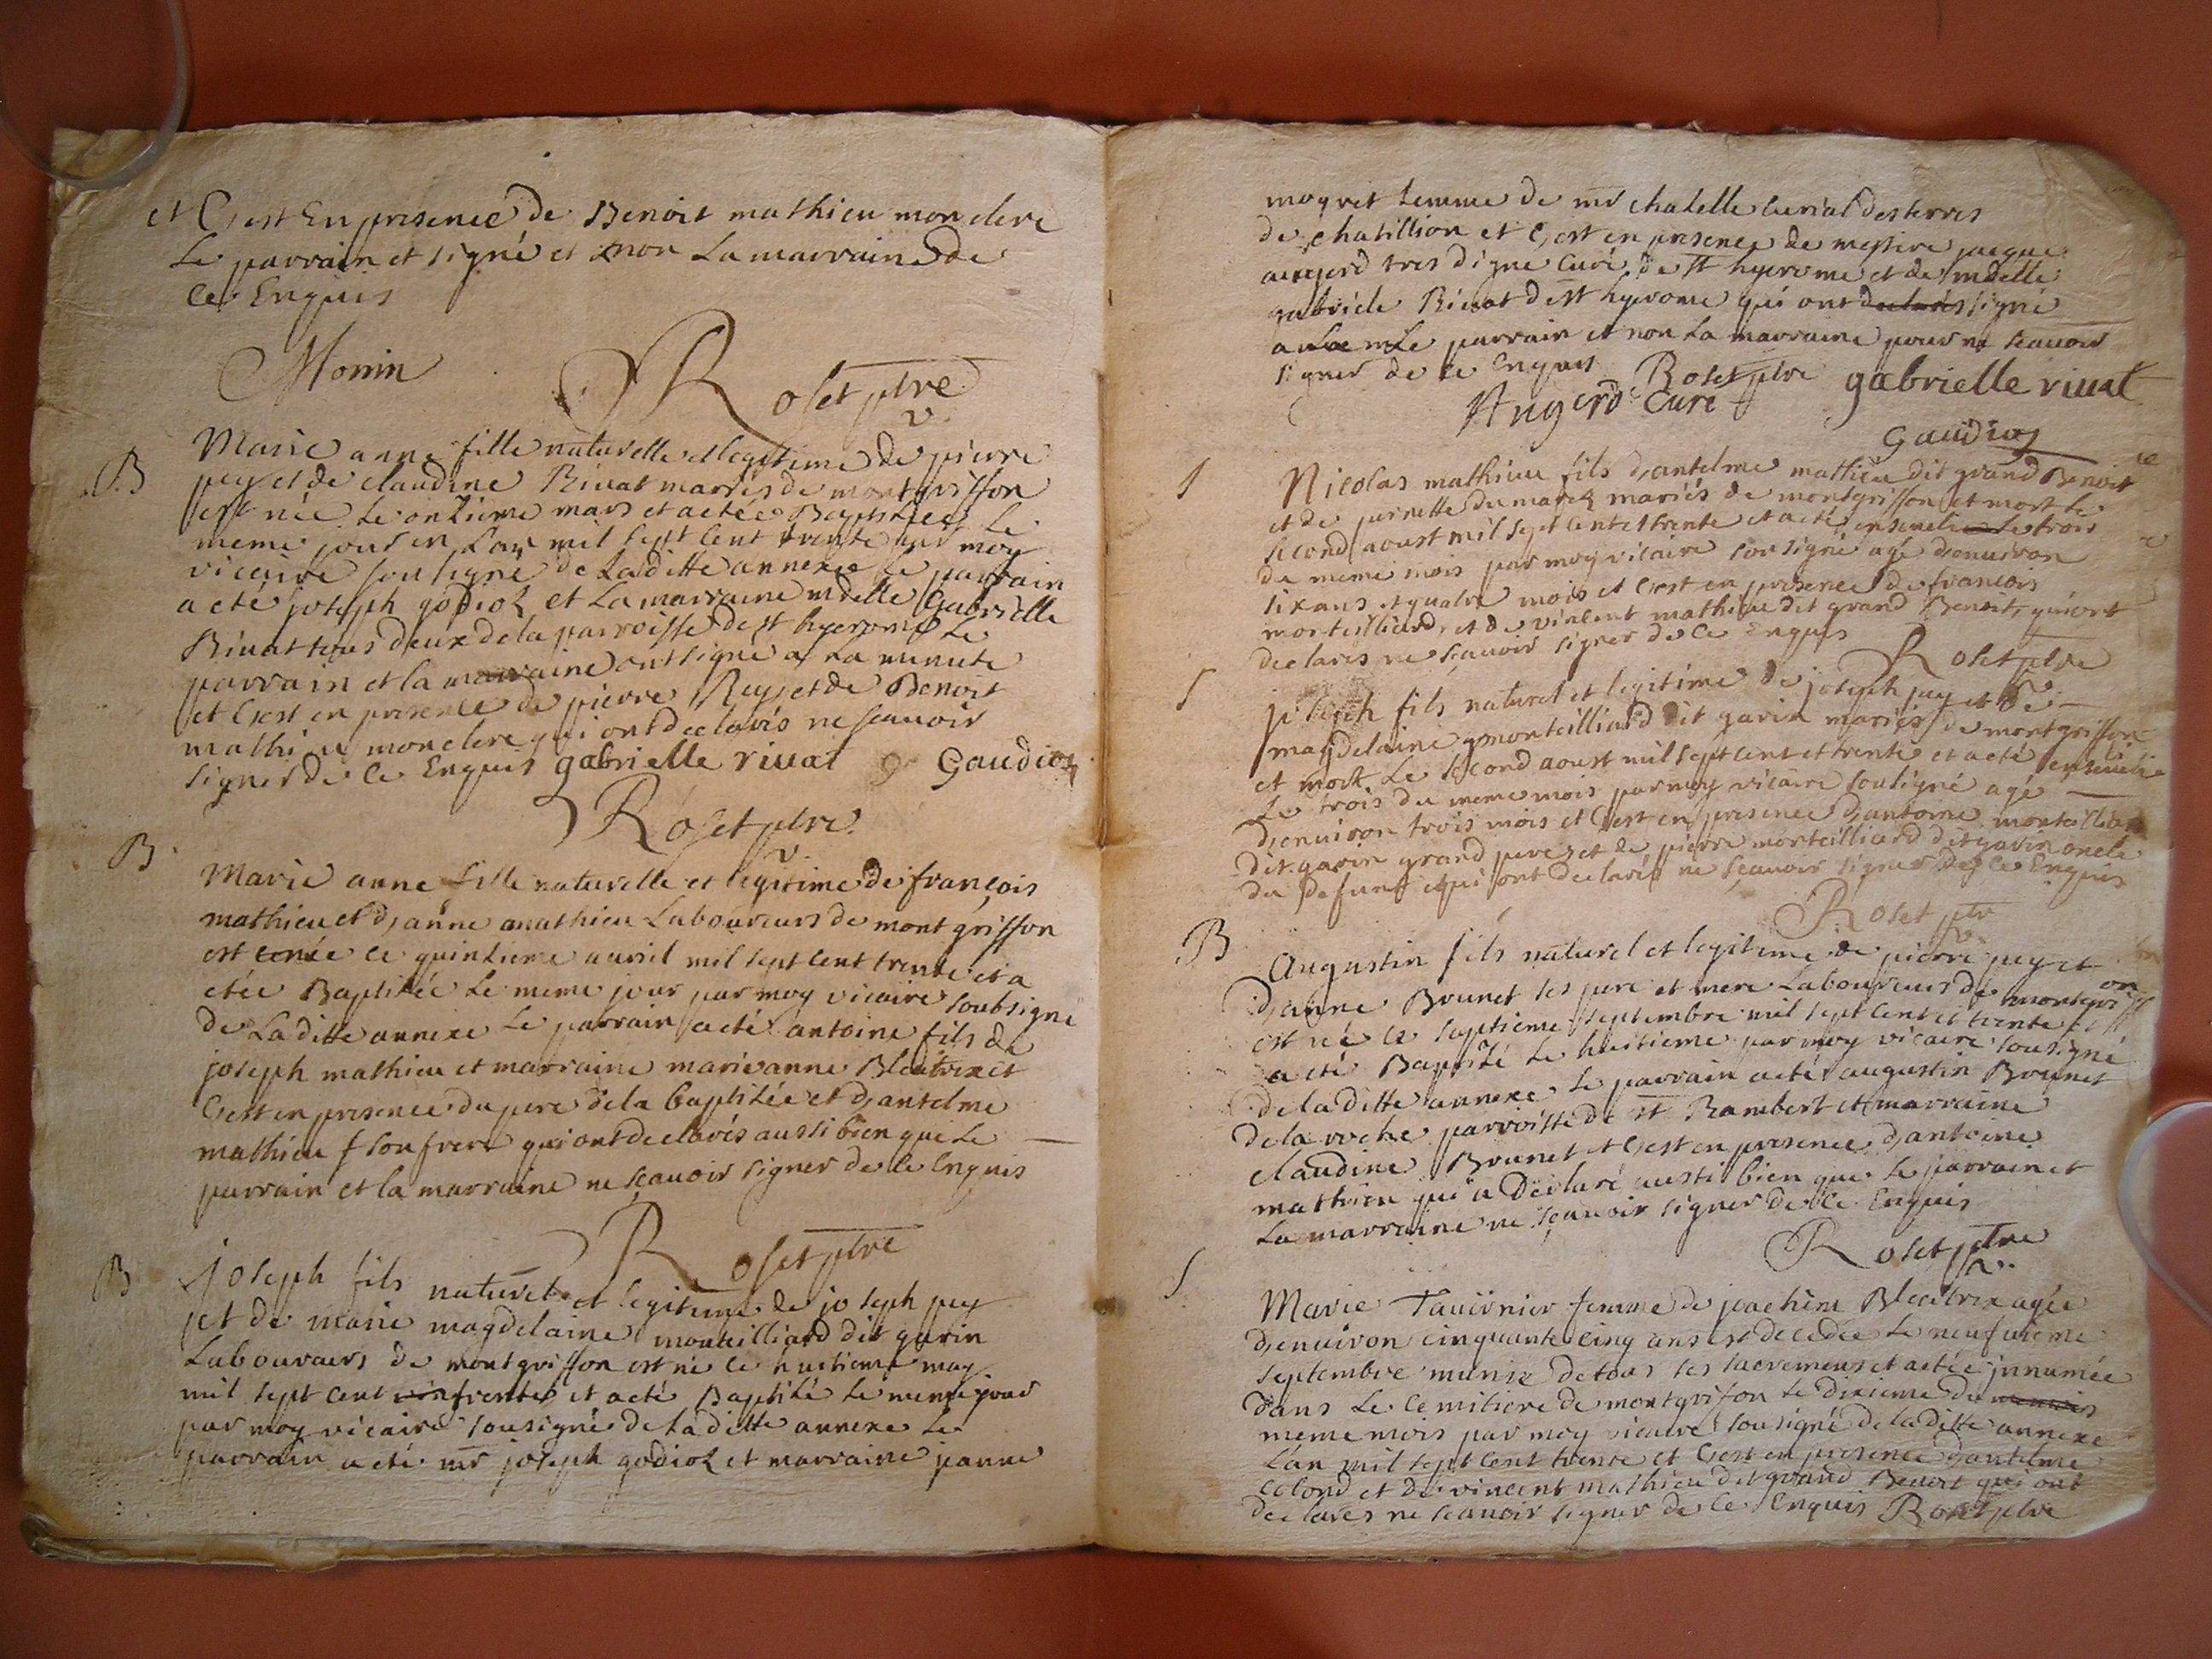 et C'est En presence de Benoit mathieu monclerc
Le parrain et signé et non La marraine de
ce Enquis
Monin
Roset ptre
v.
B
Marie anne fille naturelle et legitime de pierre
pey et de claudine Rivat mariés de montgriffon
est née Le onzieme mars et a etée Baptisée Le
meme jour en L'an mil sept Cent trente par moy
vicaire sousigné de Laditte annexe Le parrain
a eté joseph godioz et La marraine mdelle Gabrielle
Rivat tous deux de la parroisse de st hyerome Le
parrain et la marraine ont signé a La minute
et C'est en presence de pierre Rey et de Benoit
mathieu monclerc qui ont declarés ne scauoir
signer de ce Enquis gabrielle riuat Gaudioz
Roset ptre
v
B
Marie anne fille naturelle et legitime de françois
mathieu et d'anne mathieu Laboureurs de montgriffon
est née ce quinzieme auril mil sept Cent trente et a
etée Baptisée Le meme jour par moy vicaire soubsigné
de Laditte annexe Le parrain a eté antoine fils de
joseph mathieu et marraine marieanne Bleatrix et
C'est en presence du pere de la baptisée et d'antelme
mathieu son frere qui ont declarés aussi bien que Le
parrain et la marraine ne scauoir signer de ce Enquis
Roset ptre
B
joseph fils naturel et legitime de joseph pey
et de marie magdelaine monteilliard dit garin
Laboureurs de montgriffon est né le huitieme may
mil sept cent trente et a eté Baptisé Le meme jour
par moy vicaire sousigné de laditte annexe Le
parrain a eté mr joseph godioz et marraine jeanne
moyret femme de mr chatelle Curial des terres
de chatillion et C'est en presence de messire jacque
augerd tres digne Curé de st hyerome et de mdelle
gabriele Rivat de st hyerome qui ont declarés signé
Le parrain et non La marraine pour ne scauoir
signer de ce Enquis Roset ptre gabrielle riuat
Augerd Curé
Gaudioz
S
Nicolas mathieu fils d'antelme mathieu dit grand Benoit
et de pernette dumarez mariés de montgriffon et mort le
second aoust mil sept cent et trente et a eté enseueli Le trois
du meme mois par moy vicaire sousigné agé d'enuiron
six ans et quatre mois et C'est en presence de françois
monteilliard et de vincent mathieu dit grand Benoit, qui ont
declarés ne sçauoir signer de ce Enquis
Roset ptre
v.
S
joseph fils naturel et legitime de joseph pey et de
magdelaine monteilliard dit garin mariés de montgriffon
et mort Le second aoust mil sept cent et trente et a eté enseueli
Le trois du meme mois par moy vicaire sousigné agé
d'enuiron trois mois et C'est en presence d'antoine monteilliard
dit garin grand pere et de pierre monteilliard dit garin oncle
du defunt et qui ont declarés ne sçauoir signer de ce Enquis
Roset ptre
v
B
Augustin fils naturel et legitime de pierre pey et
d'anne Brunet ses pere et mere Laboureurs de montgriffon
est né le septieme septembre mil sept Cent et trente et
a eté Baptisé Le huitieme par moy vicaire sousigné
de la ditte annexe Le parrain a eté augustin Brunet
de la roche parroisse de st Rambert et marraine
claudine Brunet et C'est en presence d'antoine
mathieu qui a declaré aussi bien que Le parrain et
La marraine ne sçauoir signer de ce Enquis
Roset ptre
v.
S
Marie Tauirnier femme de joachim Bleatrix agée
d'enuiron cinquante cinq ans est decedée Le neufuieme
septembre munie de tous ses sacremens et a etée jnnumée
dans Le Cemitiere de montgrifon Le dixieme du
meme mois par moy vicaire sousigné de laditte annexe
L'an mil sept Cent trente et C'est en presence d'antelme
et de vincent mathieu dit grand Benoit qui ont
declarés ne scauoir signer de ce Enquis Roset ptre